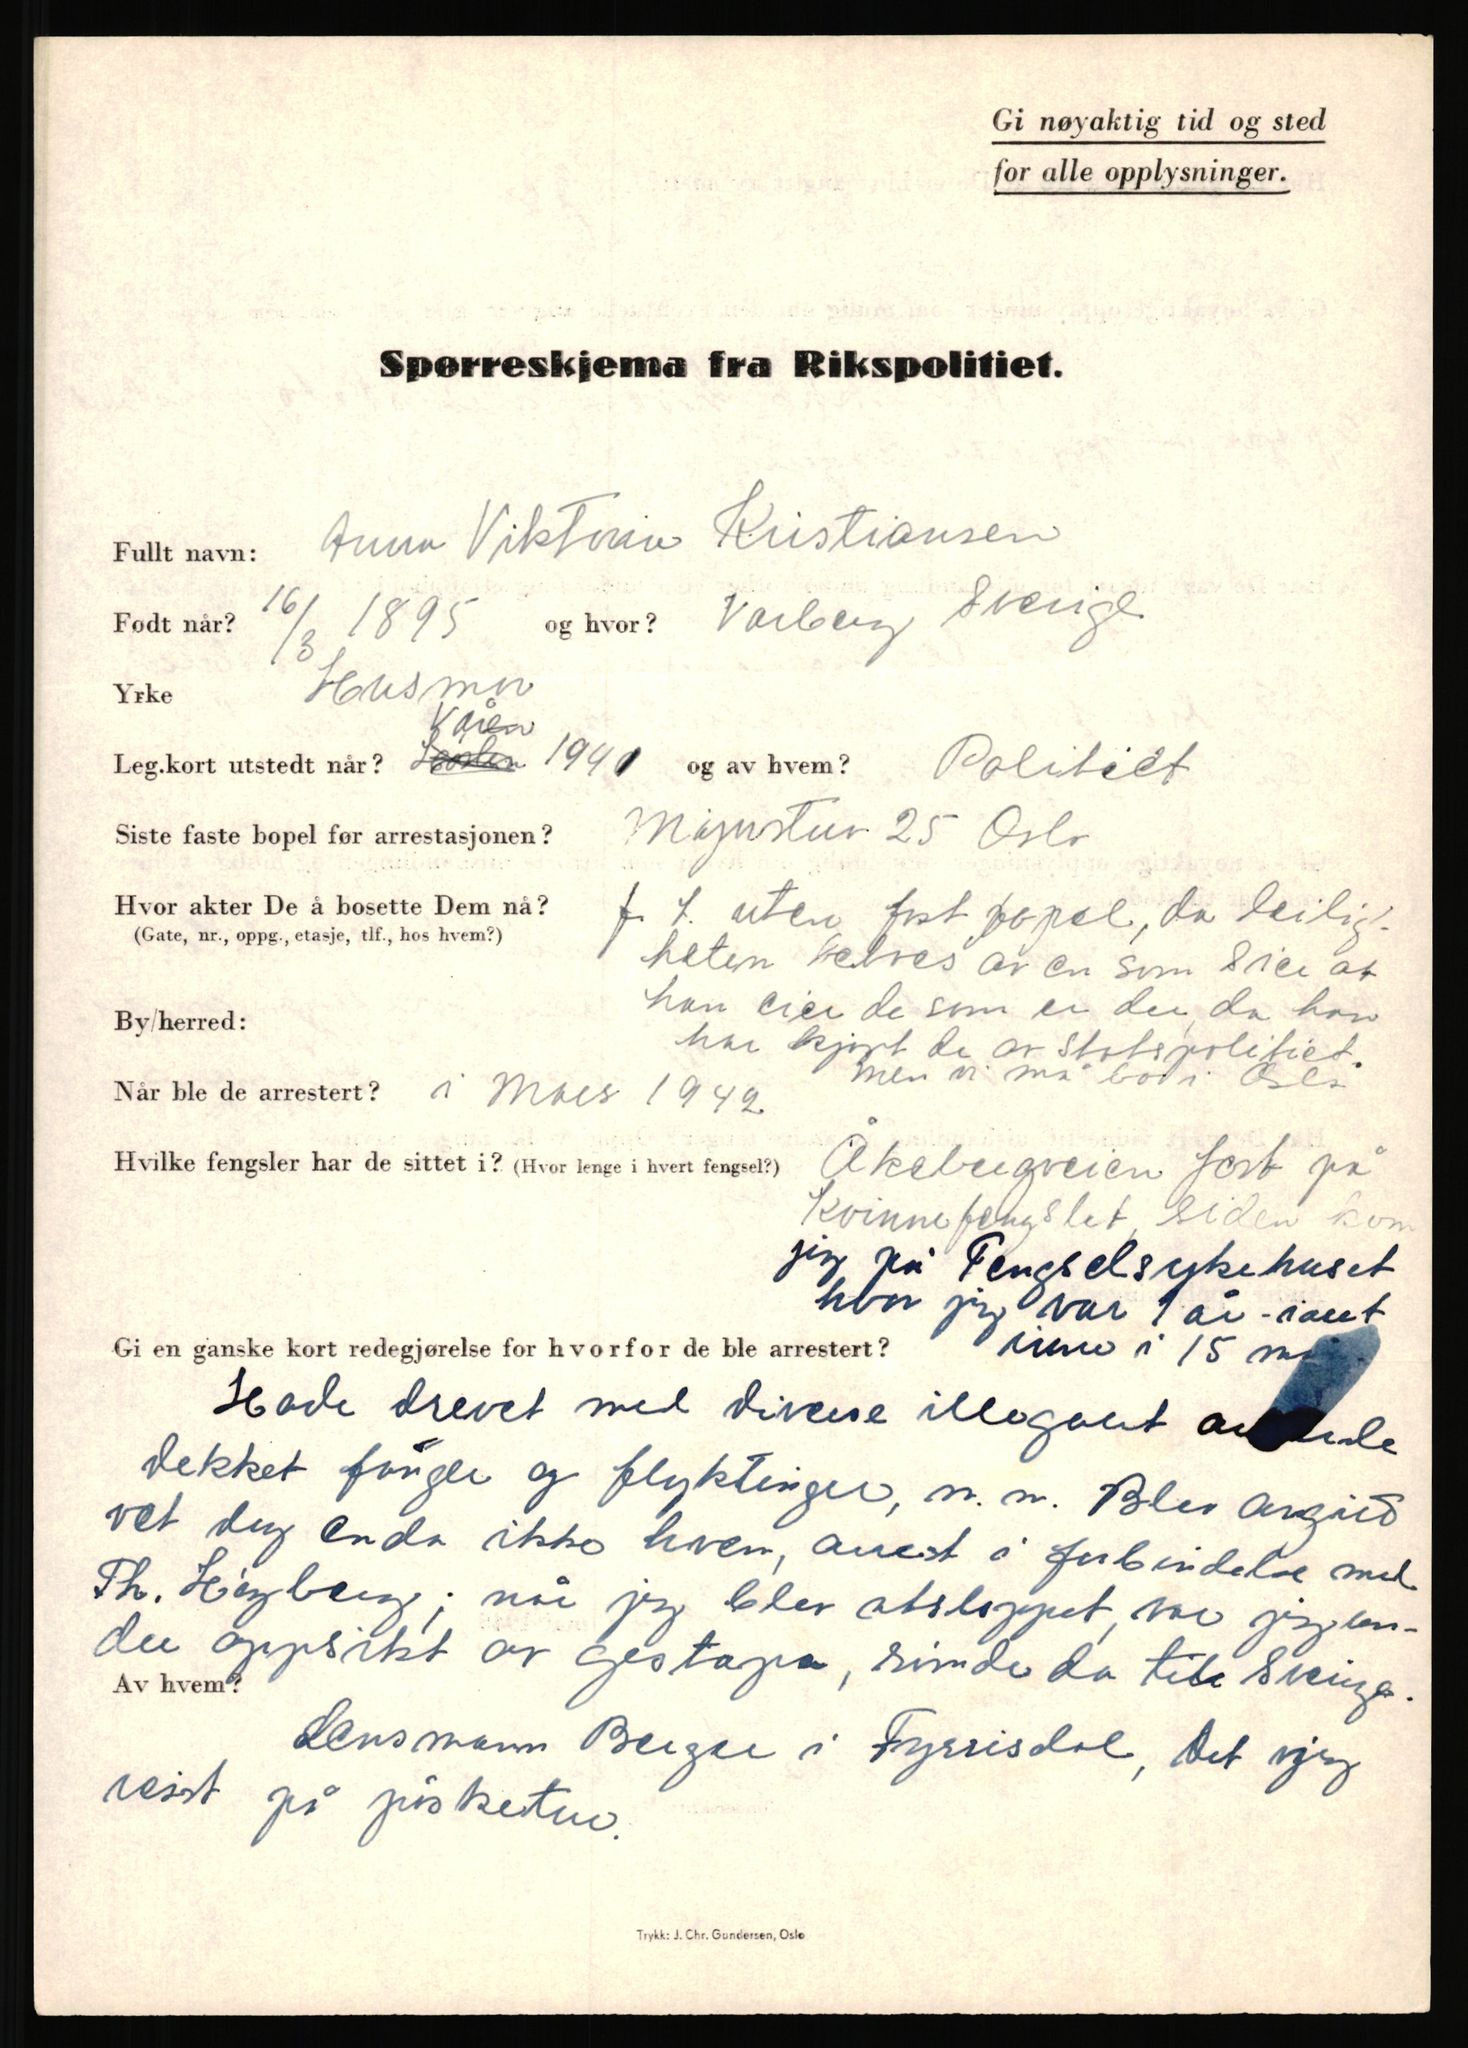 Gi nøyaktig tid og sted
for alle opplysninger.
Spørreskjema fra Rikspolitiet.
Fullt navn: Anna Viktoria Kristiansen
Født når? 16/3 1895 og hvor? Varberg Sverige
Yrke Husmor
Våren
Leg.kort utstedt når? 1941 og av hvem? Politiet
Siste faste bopel før arrestasjonen? Majorstuv 25 Oslo
Hvor akter De å bosette Dem nå? f. t. uten fast popel, da leilig-
(Gate, nr., oppg., etasje, tlf., hos hvem?) heten av en som sier at
han eier de som er der, da han
By/herred:
har kjøpt de av statspolitiet.
men vi må bo i Oslo
Når ble de arrestert? i Mars 1942
Hvilke fengsler har de sittet i? (Hvor lenge i hvert fengsel?) Åkebergveien først på
Kvinnefengslet, siden kom
jeg på Fengselsykehuset
hvor jeg var 1 år - iallt
Gi en ganske kort redegjørelse for hvorfor de ble arrestert? inne i 15 
Hade drevet med diverse illegalt
dekket fångle og flyktinger, m. m. Blev angivd
vet dog enda ikke hvem, arrest i forbindelse med
Th. Högberg; når jeg blev atsloppet, var jeg un-
der oppsikt av gestapo, rømde da till Sverige.
Av hvem?
Lensmann Berge i Fyrrisdal, det vjeg
reist på påsketur.
Trykk: J. Chr. Gundersen, Oslo